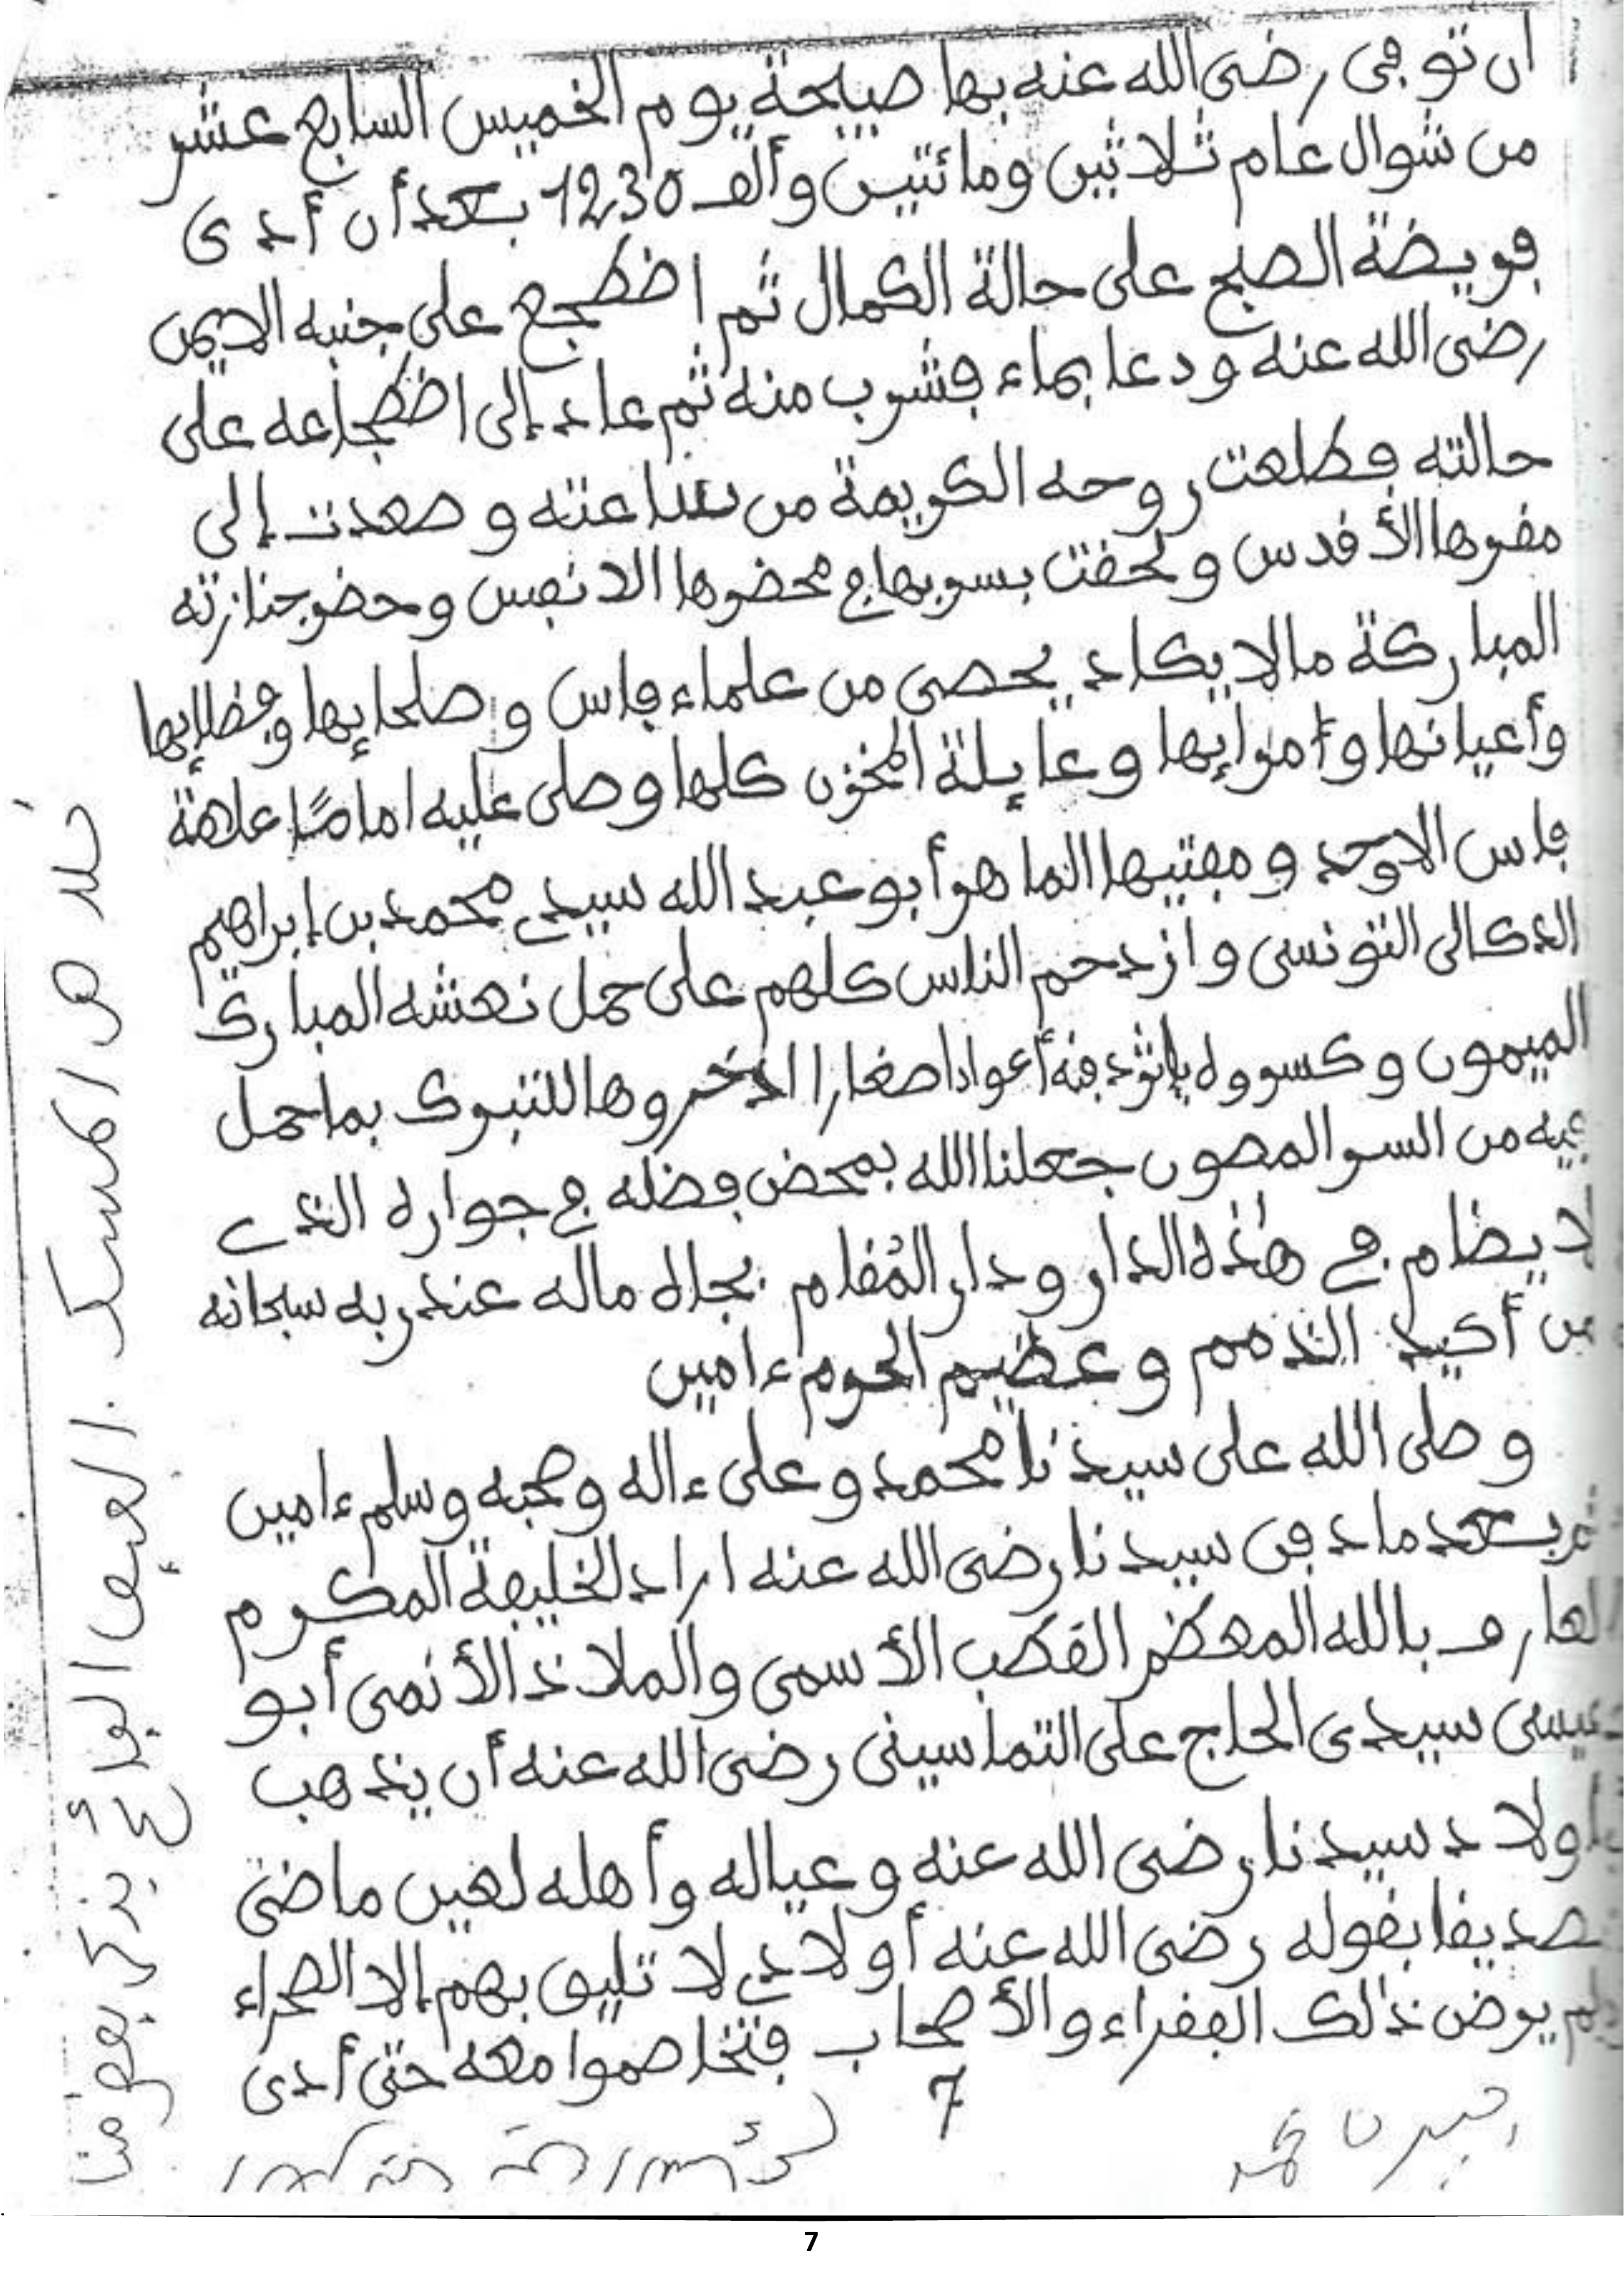 ان توفى رضى الله عنه بها صبيحة يوم الخميس السابع عشر
من شوال عام ثلاثين ومائتين وألف 1230 بعد أن أدى
فريضة الصبح على حالة الكمال ثم اضطجع على جنبه الايمن
رضى الله عنه ودعا بماء فشرب منه ثم عاد إلى اضطجاعه على
حالته فطلعت روحه الكريمة من ساعته وصعدت إلى
مقرها الأقدس ولحقت بسربها في محضرها الانفس وحضر جنازته
المباركة مالا يكاد يحصى من علماء فاس وصلحايها وفضلايها
وأعيانها وأمرايها وعايلة المخزن كلها وصلى عليه اماما علامة
فاس الاوحد ومفتيها الماهر أبو عبد الله سيدي محمد بن إبراهيم
الدكالى التونسى وازدحم الناس كلهم على حمل نعشه المبارك
الميمون وكسروه بإثر دفنه أعوادا صغارا ادخروها للتبرك بما حمل
فيه من السر المصون جعلنا الله بمحض فضله في جواره الذي
لا يضام في هذه الدار ودار المقام بجاه ماله عند ربه سبحانه
من أكيد الذمم وعظيم الحرم ءامين
وصلى الله على سيدنا محمد وعلى ءاله وصحبه وسلم ءامين
ثم بعد ما دفن سيدنا رضى الله عنه اراد الخليفة المكرم
العارف بالله المعظم القطب الأسمى والملاذ الأنمى أبو
عيسى سيدى الحاج على التماسينى رضى الله عنه أن يذهب
بأولاد سيدنا رضى الله عنه وعياله وأهله لعين ماضى
تصديقا بقوله رضى الله عنه أولادي لا تليق بهم إلا الصحراء
ولم يرض ذلك الفقراء والأصحاب فتخاصموا معه حتى أدى
7
7